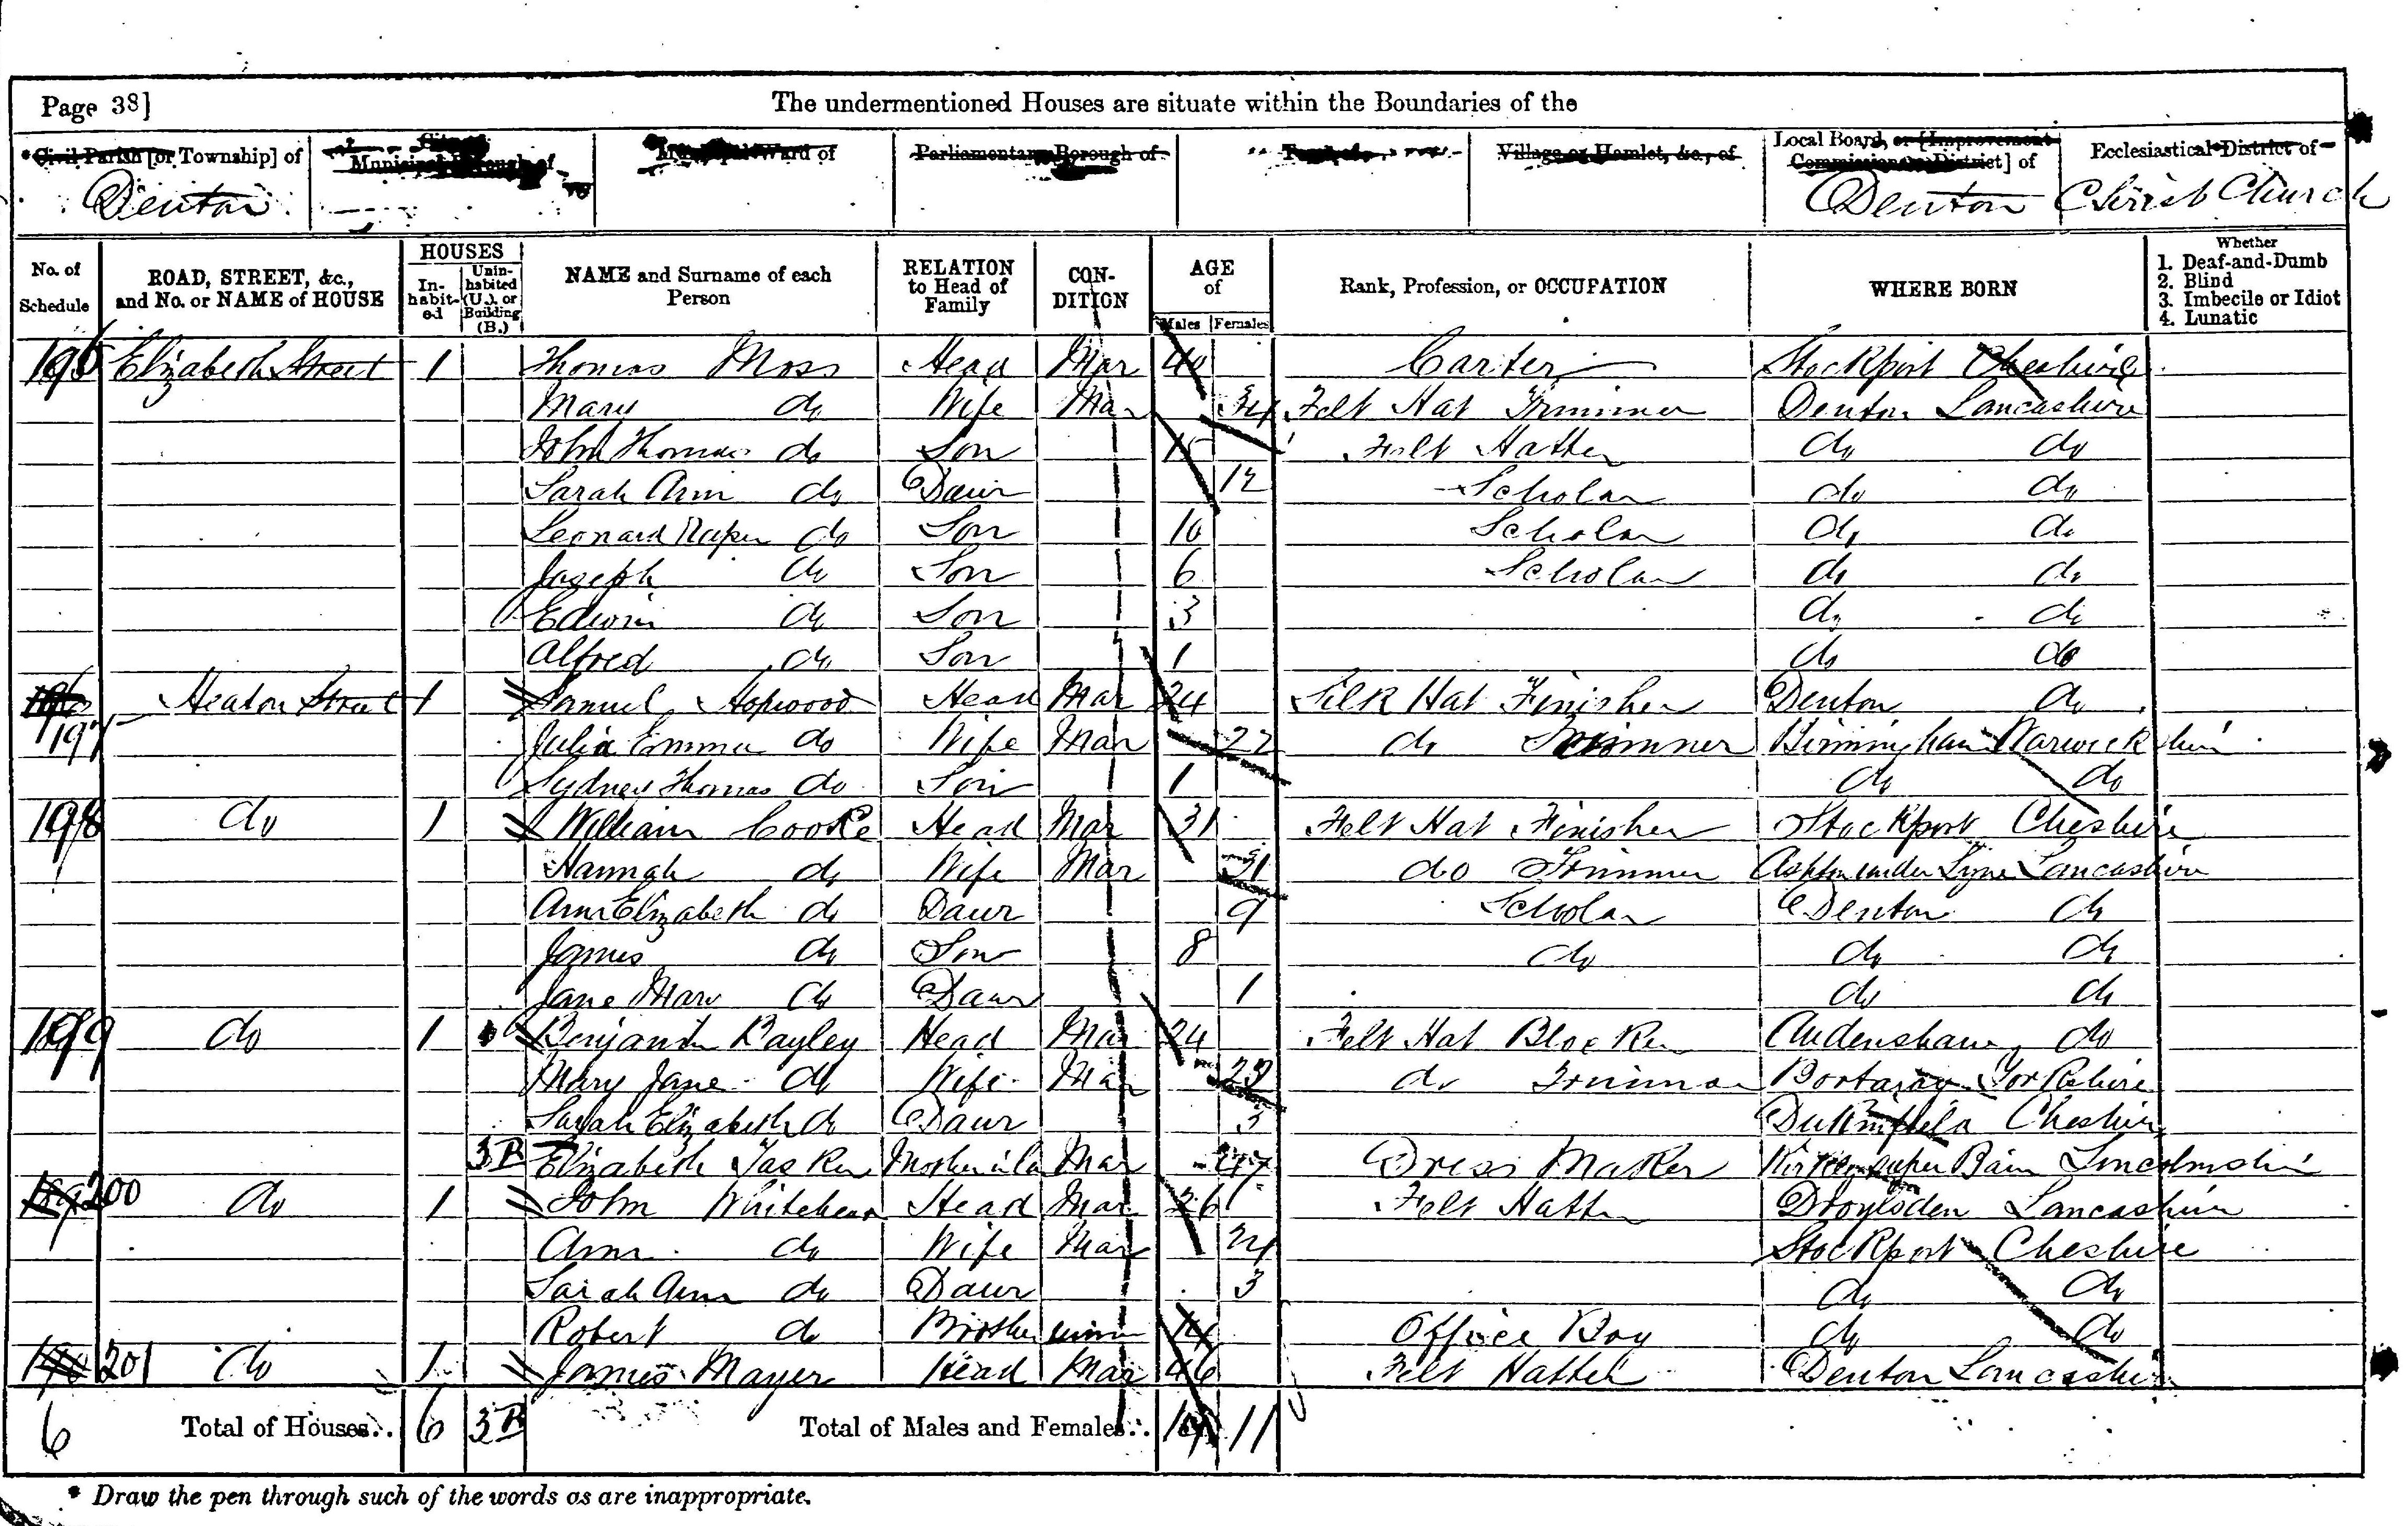 Page 38]
The undermentioned Houses are situate within the Boundaries of the
* Civil Parish [or Township] of
City or Municipal Borough of
Municipal Ward of
Parliamentary Borough of
Village or Hamlet, &c., of
Local Board, or [Improvement Commissioners District] of
Ecclesiastical District of
Denton Denton Christ Church
No. of Schedule
ROAD, STREET, &c., and No. or NAME of HOUSE
HOUSES
In-habit-ed
Unin-habited (U.), or Building (B.)
NAME and Surname of each Person
RELATION to Head of Family
CON-DITION
AGE of
Males Females
Rank, Profession, or OCCUPATION
WHERE BORN
Whether
1. Deaf-and-Dumb
2. Blind
3. Imbecile or Idiot
4. Lunatic
Elizabeth Street 1 Thomas Moss Head Mar 40 Carter Stockport Cheshire
Mary do Wife Mar 34 Felt Hat Trimmer Denton Lancashire
John Thomas do Son 15 Felt Hatter do do
Sarah Ann do Daur 12 Scholar do do
Leonard do Son 10 Scholar do do
Joseph do Son 6 Scholar do do
Edwin do Son 3 do do
Alfred do Son 1 do do
Heaton Street 1 Samuel Hopwood Head Mar 24 Silk Hat Finisher Denton do
197 Julia Emma do Wife Mar 22 do Trimmer Birmingham Warwickshire
Sydney Thomas do Son 1 do do
198 do 1 William Cooke Head Mar 31 Felt Hat Finisher Stockport Cheshire
Hannah do Wife Mar 31 do Trimmer Ashton under Lyne Lancashire
Ann Elizabeth do Daur 9 Scholar Denton do
James do Son 8 do do do
Jane Mary do Daur 1 do do
199 do 1 Benjamin Bayley Head Mar 24 Felt Hat Blocker Audenshaw do
Mary Jane do Wife Mar do Trimmer Yorkshire
Sarah Elizabeth do Daur 3 Dukinfield Cheshire
3B Elizabeth Tasker Mother in La Mar 47 Dress Maker Lincolnshire
200 do 1 John Whitehead Head Mar 26 Felt Hatter Droylsden Lancashire
Ann do Wife Mar 24 Stockport Cheshire
Sarah Ann do Daur 3 do do
Robert do Brother unm 14 Office Boy do do
201 do 1 James Mayer Head Mar 46 Felt Hatter Denton Lancashire
6 Total of Houses.. 6 3B Total of Males and Females.. 14 11
* Draw the pen through such of the words as are inappropriate.